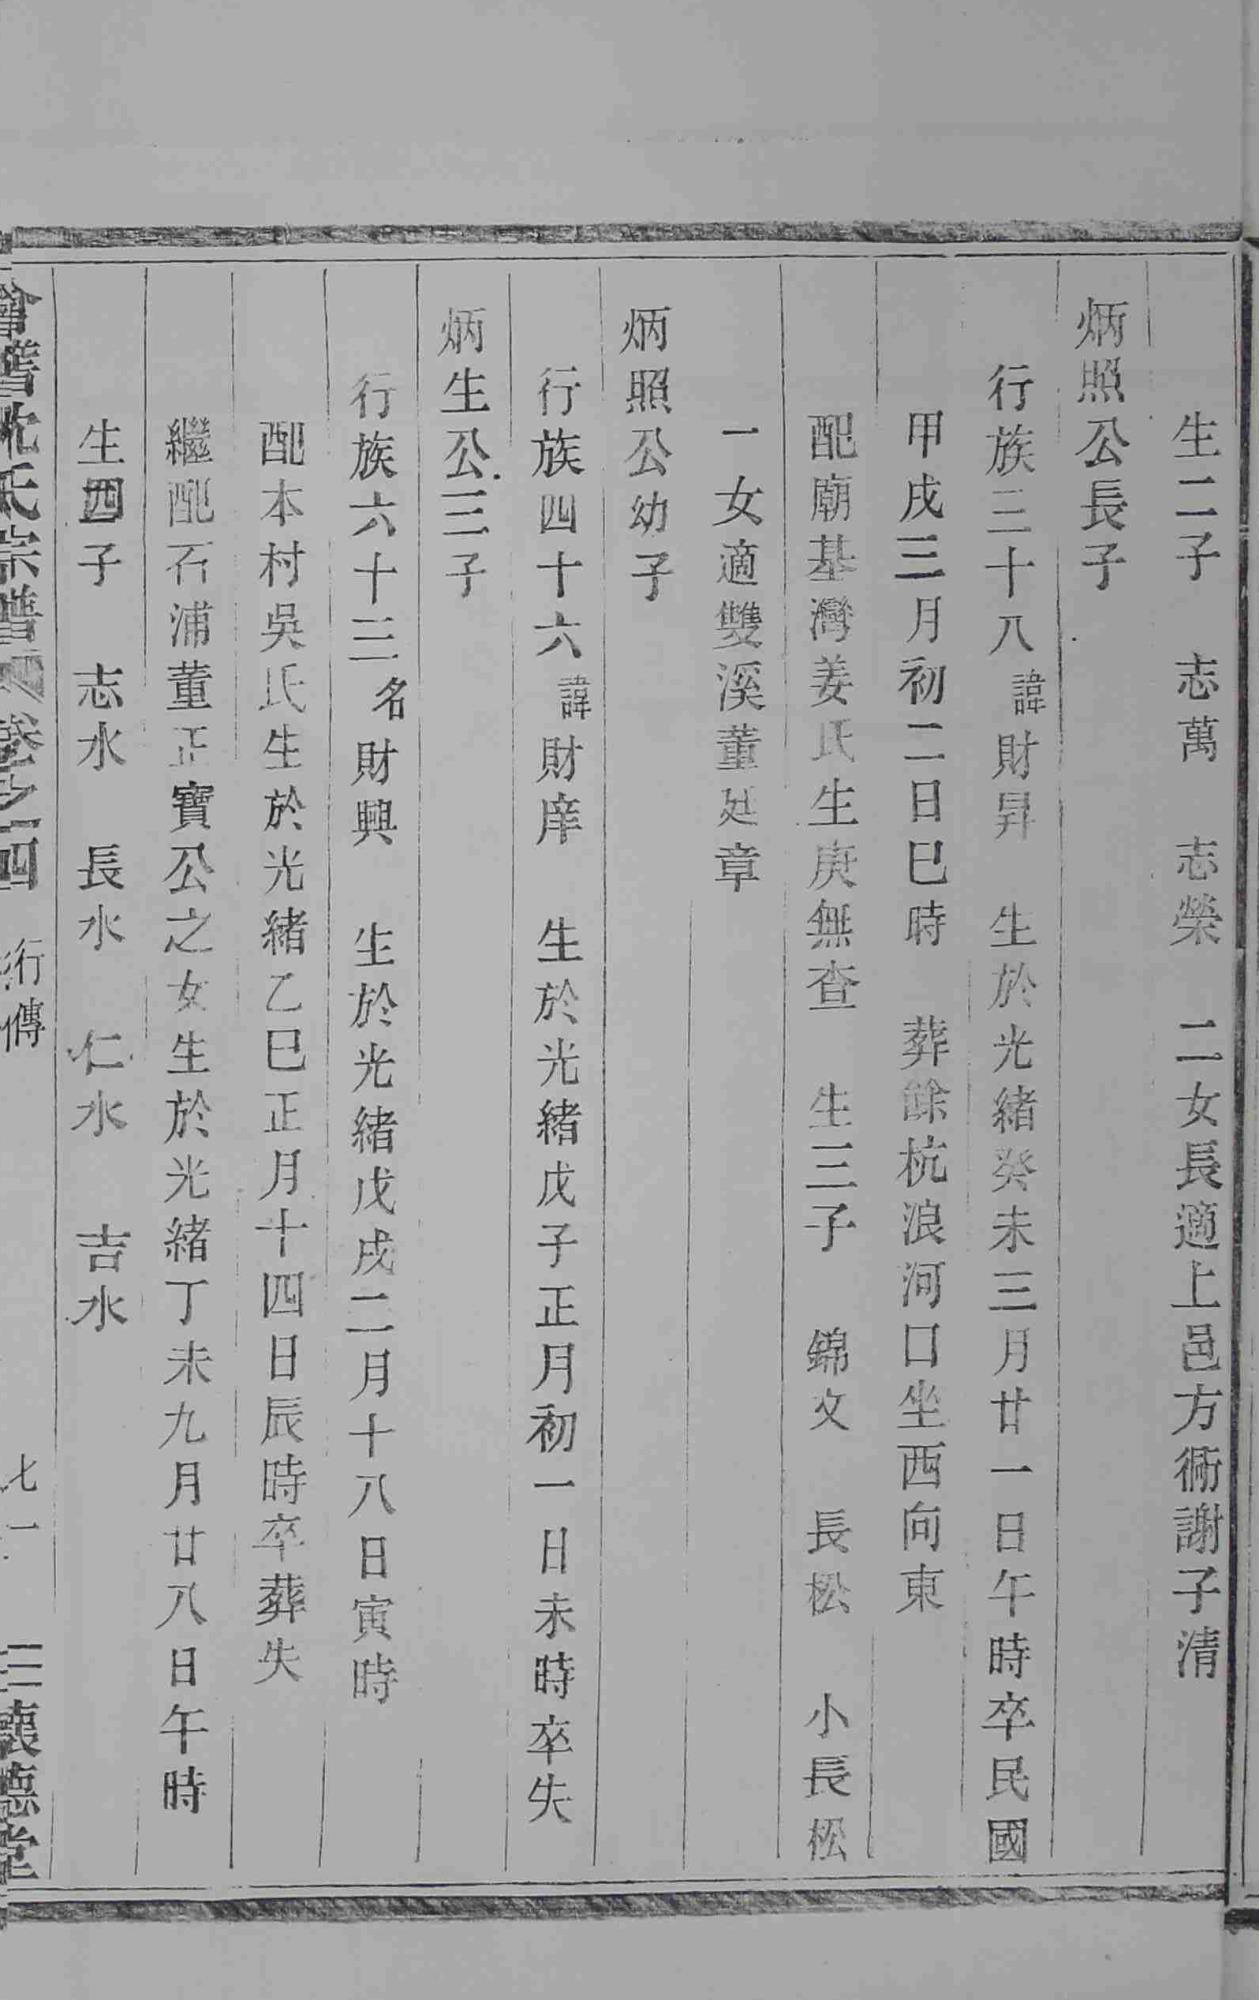 生二子　志萬　志榮　二女長適上邑方衖謝子清
炳照公長子
行族三十八諱財昇　生於光緒癸未三月廿一日午時卒民國
甲戌三月初二日巳時　葬餘杭浪河口坐西向東
配廟基灣姜氏生庚無查　生三子　錦文　長松　小長松
一女適雙溪董廷章
炳照公幼子
行族四十六諱財庠　生於光緒戊子正月初一日未時卒失
炳生公三子
行族六十三名財興　生於光緒戊戌二月十八日寅時
配本村吳氏生於光緒乙巳正月十四日辰時卒葬失
繼配石浦董正寶公之女生於光緒丁未九月廿八日午時
生四子　志水　長水　仁水　吉水
會稽沈氏宗譜　卷之四　行傳　七一　三懷德堂